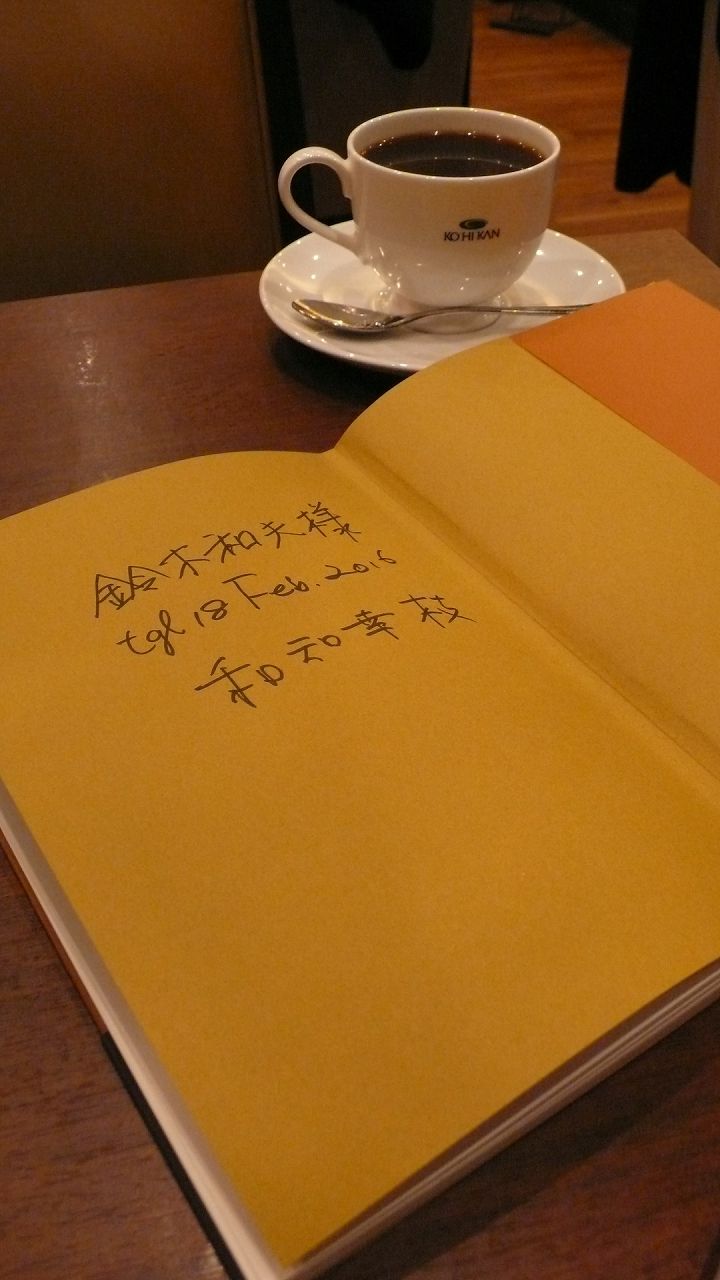 KOHIKAN
鈴木和夫様
tgl 18 Feb. 2016
和知幸枝